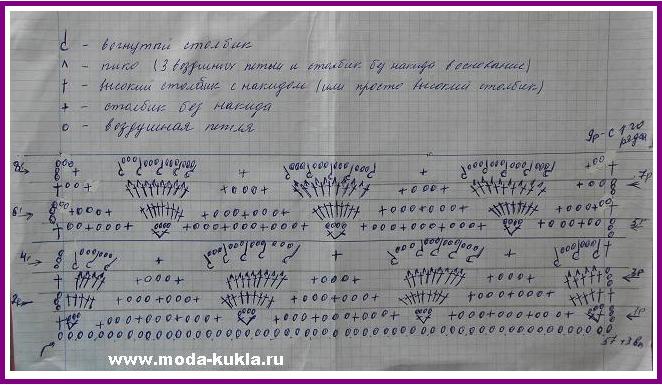 - вогнутый столбик
^ - пико (3 воздушных петли и столбик без накида в основание)
† - высокий столбик с накидом (или просто высокий столбик)
+ - столбик без накида
о - воздушная петля
9р - с 1го
ряда
8р
7р
6р
5р
4р
3р
2р
1р
57+3вп
www.moda-kukla.ru